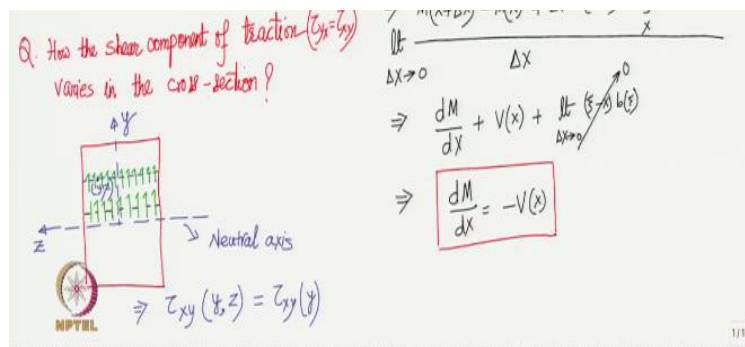 Q. How the shear component of traction (τyx=τxy)
varies in the cross-section?
y
(y,z)
z
Neutral axis
⇒ τxy (y,z) = τxy(y)
NPTEL
x
lt
Δx→0
Δx
⇒ dM/dx + V(x) + lt Δx→0 (ξ-x) b(ξ) 0
⇒ dM/dx = -V(x)
1/1